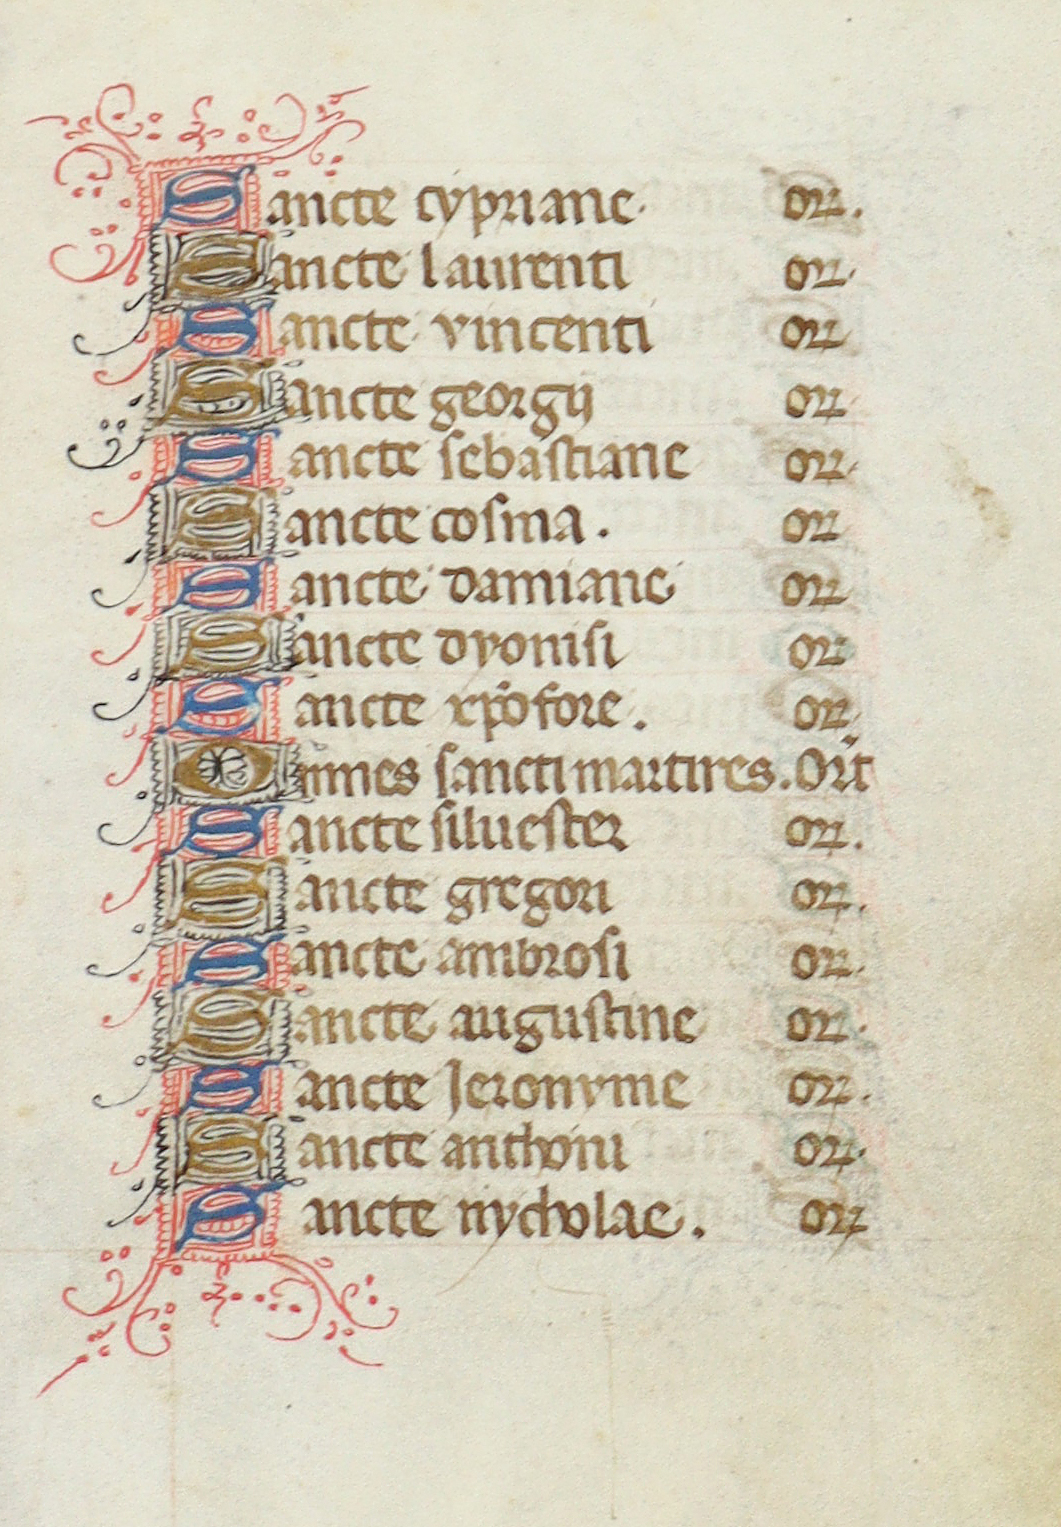 Sancte cypriane. or.
Sancte laurenti or.
Sancte vincenti or
Sancte georgij or
Sancte sebastiane or.
Sancte cosma. or
Sancte damiane or
Sancte dyonisi or
Sancte xp̃ofore. or
Omnes sancti martires. Or̃t
Sancte siluester or.
Sancte gregori or.
Sancte ambrosi or.
Sancte augustine or.
Sancte Jeronyme or.
Sancte anthoni or.
Sancte nycholae. or